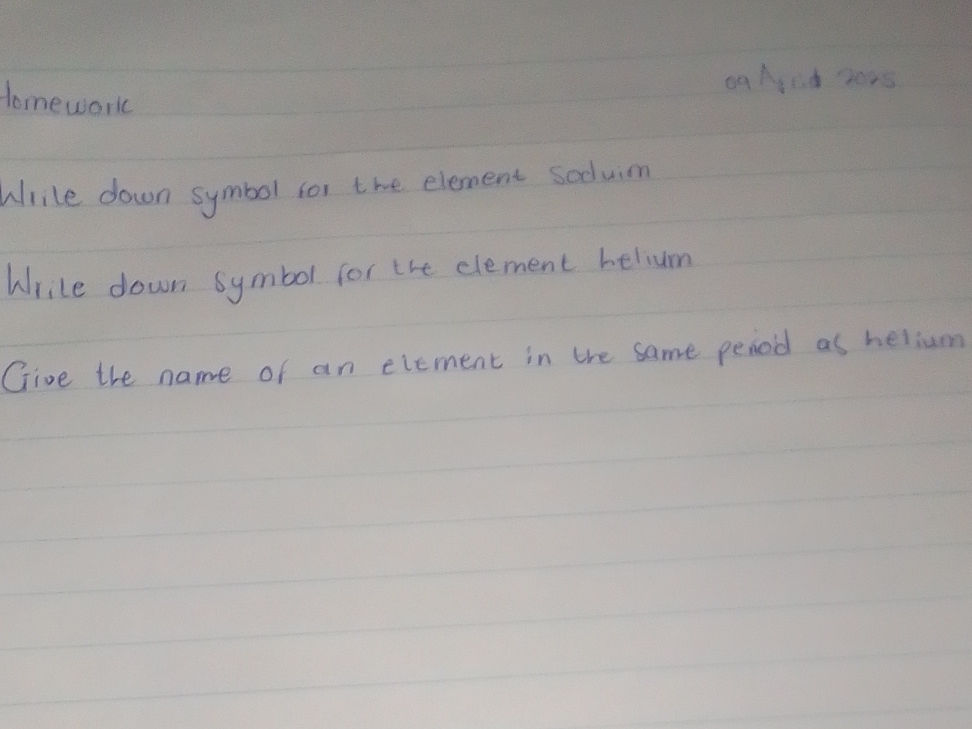 Homework 09 April 2025
Write down symbol for the element Soduim
Write down symbol for the element helium
Give the name of an element in the same period as helium